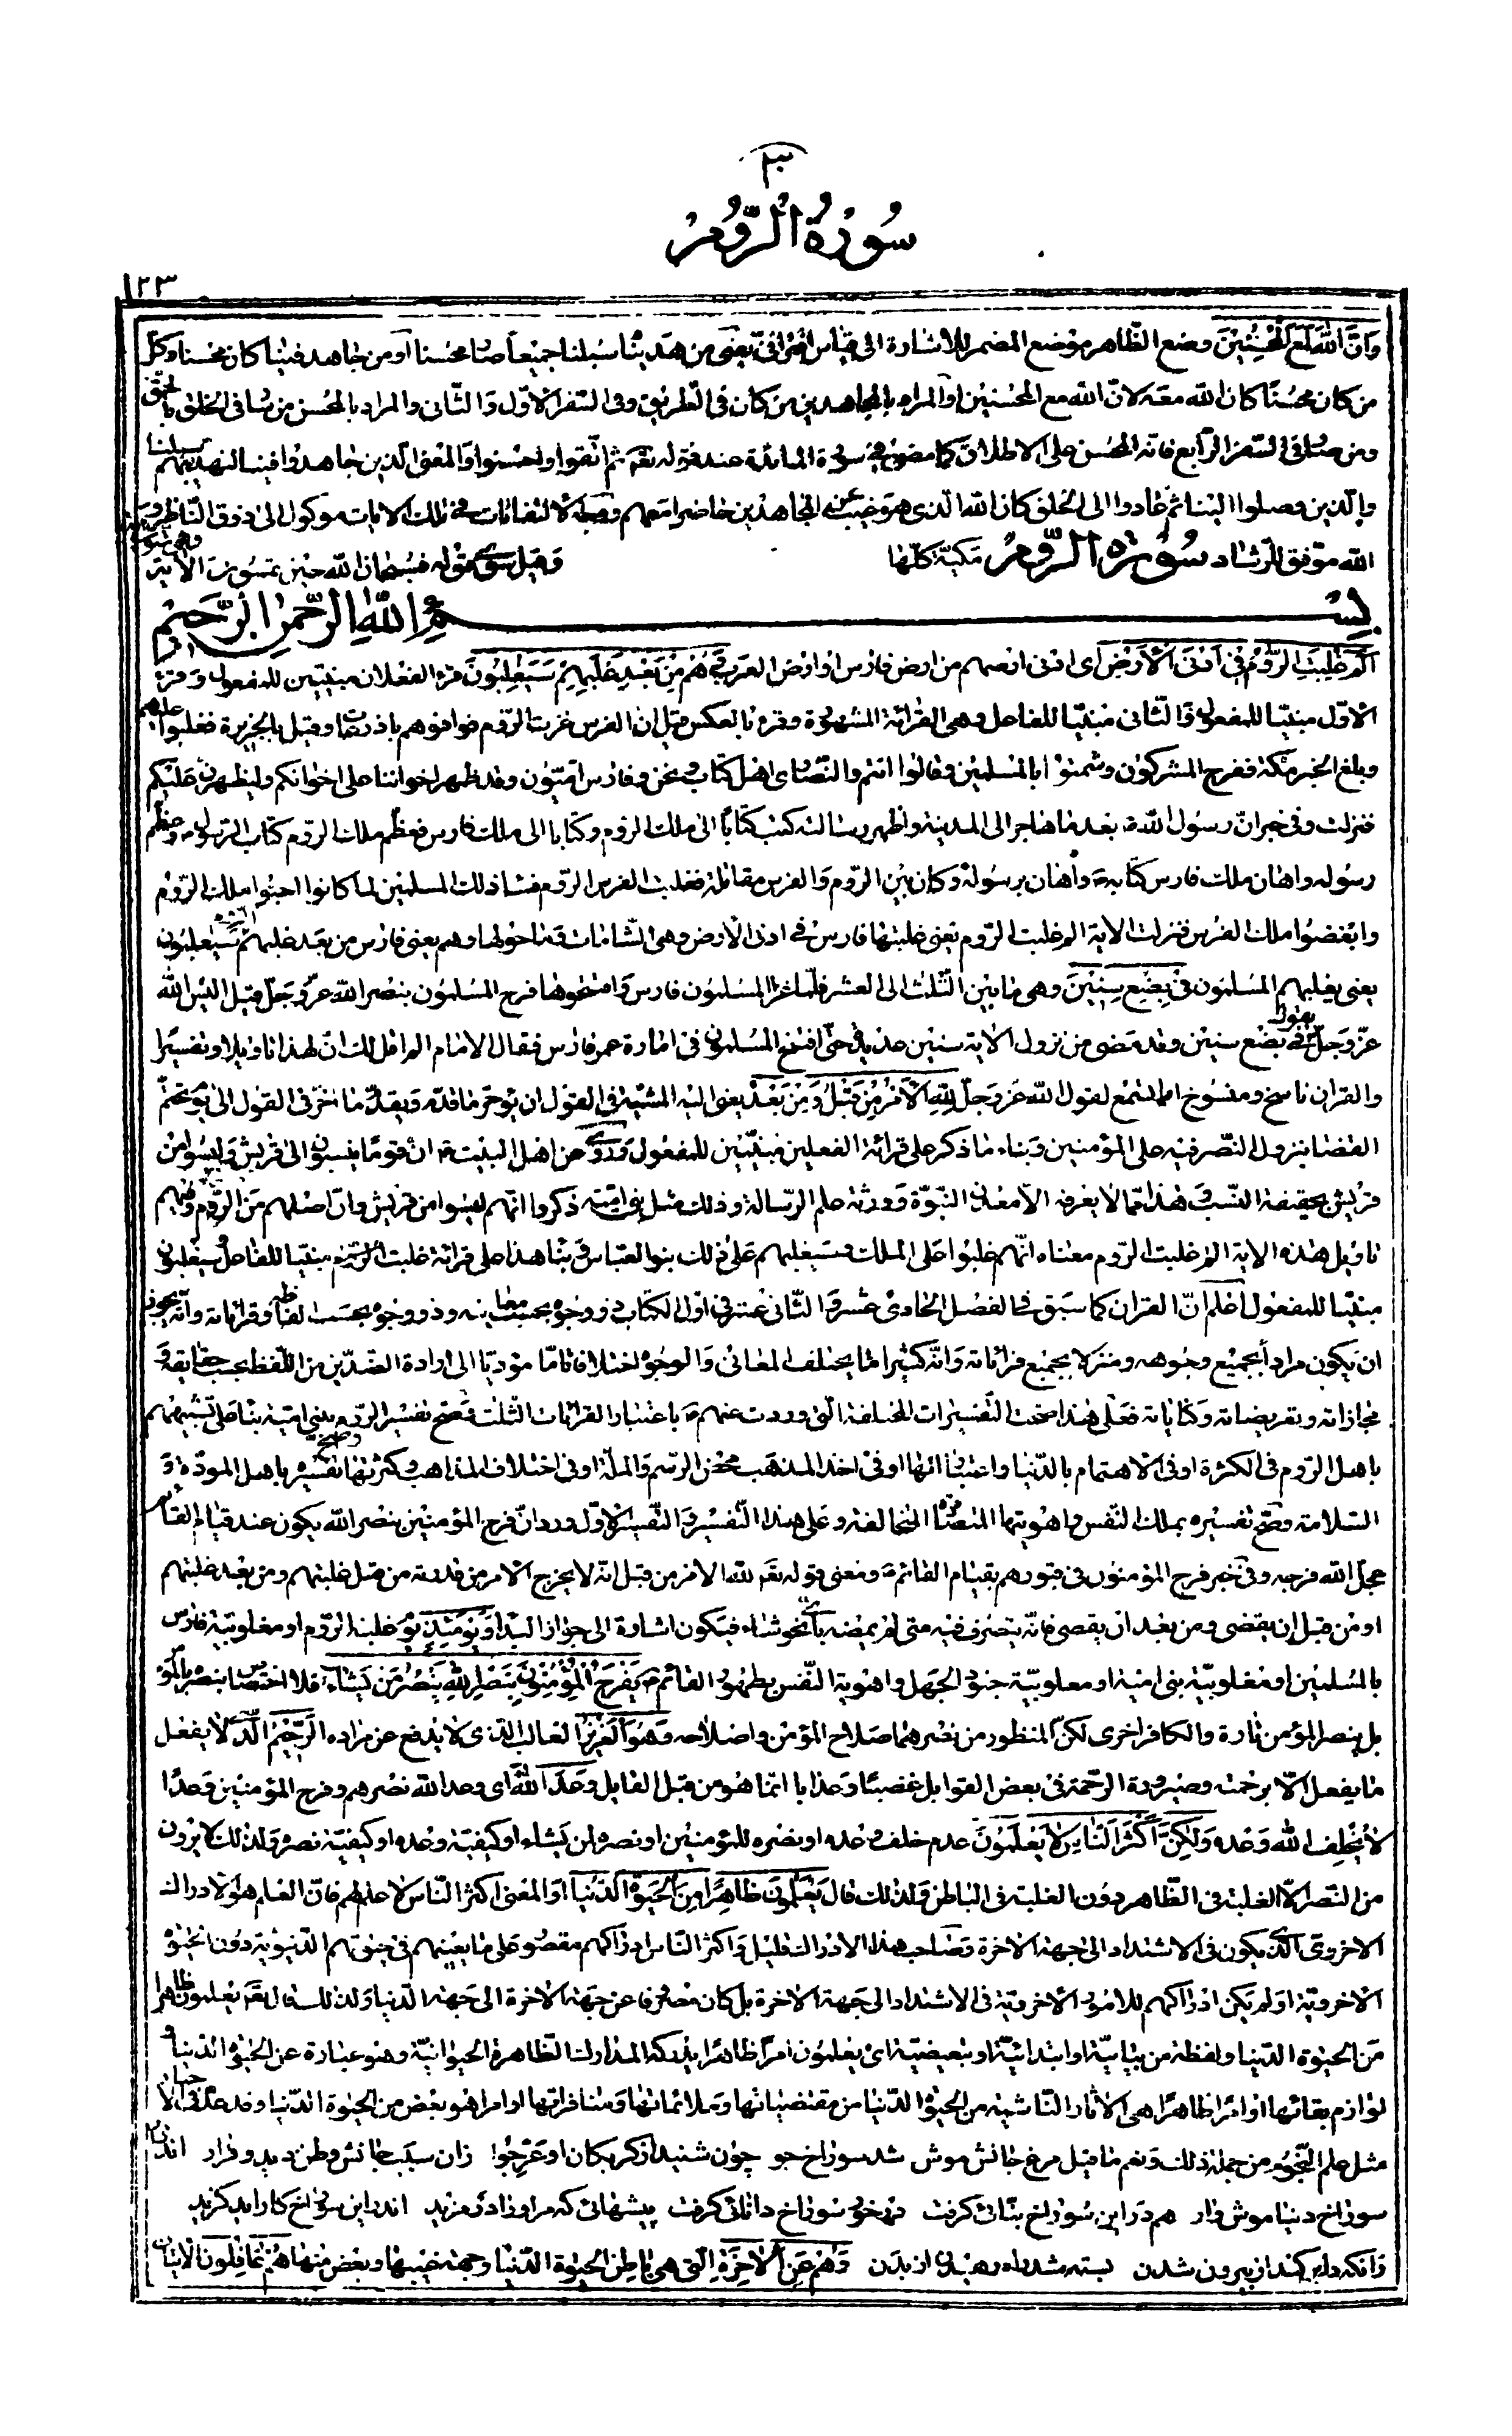 ٣٠
سُورَةُ الرُّومِ
١٢٣
وَاِنَّ اللّٰهَ لَمَعَ الْمُحْسِنِيْنَ وضع الظّاهر موضع المضمر للاشارة الى قياس اقترانىّ يعنى من هديناه سبلنا جميعاً صار محسنا او من جاهد فينا كان محسنا وكلّ
من كان محسنًا كان اللّه معه لانّ اللّه مع المحسنين او المراد بالمجاهدين من كان فى الطّريق وفى السّفر الاوّل والثّانى والمراد بالمحسن من سافر فى الخلق بالحقّ
ومن سافر السّفر الرّابع فانّه المحسن على الاطلاق كما مضى فى سورة المائدة عند قوله تعالى ثمّ اتّقوا واحسنوا والمعنى الّذين جاهدوا فينا لنهدينّهم سبلنا
والّذين وصلوا الينا ثمّ عادوا الى الخلق كان اللّه الّذى هو غيب عن المجاهدين حاضرا معهم ووجه الالتفاتات فى تلك الايات موكول الى ذوق النّاظرين
اللّه موفّق للرّشاد سُورَة الرُّومِ مكّيّة كلّها وقيل سوى قوله فسبحان اللّه حين تمسون الاية
بِسْمِ اللّٰهِ الرَّحْمٰنِ الرَّحِيْمِ
الٓمٓ غُلِبَتِ الرُّوْمُ فِى اَدْنَى الْاَرْضِ اى ادنى ارضهم من ارض فارس او ارض العرب وَهُمْ مِنْ بَعْدِ غَلَبِهِمْ سَيَغْلِبُوْنَ قرئ الفعلان مبنيّين للمفعول وقرئ
الاوّل مبنيّا للمفعول والثّانى مبنيّا للفاعل وهى القرائة المشهورة وقرئ بالعكس قيل انّ الفرس غزت الرّوم فوافوهم باذرعات وقيل بالجزيرة فغلبوا عليهم
وبلغ الخبر مكّة ففرح المشركون وشمتوا بالمسلمين وقالوا انتم والنّصارى اهل كتاب ونحن وفارس امّيّون وقد ظهر اخواننا على اخوانكم ولنظهرنّ عليكم
فنزلت وفى خبر انّ رسول اللّه ص بعد ما هاجر الى المدينة واظهر رسالته كتب كتابًا الى ملك الرّوم وكتابا الى ملك فارس فعظّم ملك الرّوم كتاب الرّسول وعظّم
رسوله واهان ملك فارس كتابه واهان برسوله وكان بين الرّوم والفرس مقاتلة فغلبت الفرس الرّوم فساء ذلك المسلمين لما كانوا احبّوا ملك الرّوم
وابغضوا ملك الفرس فنزلت الاية الم غلبت الرّوم يعنى غلبتها فارس فى ادنى الارض وهى الشّامات وما حولها وهم يعنى فارس من بعد غلبهم سيغلبون
يعنى يغلبهم المسلمون فِى بِضْعِ سِنِيْنَ وهى ما بين الثّلث الى العشر فلمّا غزا المسلمون فارس وافتتحوها فرح المسلمون بنصر اللّه عزّ وجلّ قيل اليس اللّه
عزّ وجلّ يقول فى بضع سنين وقد مضى من نزول الاية سنين عديدة حتّى افتتح المسلمون فى امارة عمر فارس فقال الامام الم اقل لك انّ لهذا تاويلا وتفسيرًا
والقران ناسخ ومنسوخ اما تسمع لقول اللّه عزّ وجلّ لِلّٰهِ الْاَمْرُ مِنْ قَبْلُ وَمِنْ بَعْدُ يعنى اليه المشيّة فى القول ان يؤخّر ما قدّم ويقدّم ما اخّر فى القول الى يوم تحتّم
القضاء بنزول النّصر فيه على المؤمنين وبناء ما ذكر على قرائة الفعلين مبنيّين للمفعول وروى عن اهل البيت ع انّ قومًا ينسبون الى قريش وليسوا من
قريش بحقيقة النّسب وهذا ممّا لا يعرفه الّا معدن النّبوّة وورثة علم الرّسالة وذلك مثل بنى اميّة ذكروا انّهم ليسوا من قريش وانّ اصلهم من الرّوم وفيهم
تاويل هذه الاية الم غلبت الرّوم معناه انّهم غلبوا على الملك وسيغلبهم على ذلك بنو العبّاس وبناء هذا على قرائة غلبت الرّوم مبنيّا للفاعل وسيغلبون
مبنيّا للمفعول اعلم انّ القران كما سبق فى الفصل الحادى عشر والثّانى عشر فى اوّل الكتاب ذو وجوه بحسب معانيه وذو وجوه بحسب الفاظه وقرائاته وانّه يجوز
ان يكون مرادًا بجميع وجوهه ومنزلا بجميع قرائاته وانّه كثيرا ما يختلف المعانى والوجوه اختلافا تامّا مؤدّيا الى ارادة الضّدّين من اللّفظ بحسب حقايقه و
مجازاته وتعريضاته وكناياته فعلى هذا صحّت التّفسيرات المختلفة الّتى وردت عنهم باعتبار القرائات الثّلث وصحّ تفسير الرّوم ببنى اميّة بناء على تشبيههم
باهل الرّوم فى الكثرة او فى الاهتمام بالدّنيا واعتباراتها او فى اخذ المذهب محض الرّسم والملّة او فى اختلاف المذاهب وكثرتها وصحّ تفسيره باهل المودّة و
السّلامة وصحّ تفسيره بملك النّفس واهويتها المتضادّة المتخالفة وعلى هذا التّفسير والتّفسير الاوّل ورد انّ فرح المؤمنين بنصر اللّه يكون عند قيام القائم
عجّل اللّه فرجه وفى خبر فرح المؤمنون فى قبورهم بقيام القائم ومعنى قوله تعالى للّه الامر من قبل انّه لا يخرج الامر من قدرته من قبل غلبتهم ومن بعد غلبتهم
او من قبل ان يقضى ومن بعد ان يقضى فانّه يتصرّف فيه متى لم يمضه باىّ نحو شاء فيكون اشارة الى جواز البداء وَيَوْمَئِذٍ يوم غلبة الرّوم او مغلوبيّة فارس
بالمسلمين او مغلوبيّة بنى اميّة او مغلوبيّة جنود الجهل واهوية النّفس بظهور القائم يَفْرَحُ الْمُؤْمِنُوْنَ بِنَصْرِ اللّٰهِ يَنْصُرُ مَنْ يَشَاءُ فلا اختصاص بنصره بالمؤمن
بل ينصر المؤمن تارة والكافر اخرى لكنّ المنظور من نصرهما صلاح المؤمن واصلاحه وَهُوَ الْعَزِيْزُ الغالب الّذى لا يدفع عن مراده الرَّحِيْمُ الّذى لا يفعل
ما يفعل الّا برحمته وصيرورة الرّحمة فى بعض القوابل غضبًا وعذابا انّما هو من قبل القابل وَعْدَ اللّٰهِ اى وعد اللّه نصرهم وفرح المؤمنين وعدًا
لَا يُخْلِفُ اللّٰهُ وَعْدَهُ وَلٰكِنَّ اَكْثَرَ النَّاسِ لَا يَعْلَمُوْنَ عدم خلف وعده او نصره للمؤمنين او نصره لمن يشاء او كيفيّة وعده او كيفيّة نصره ولذلك لا يرون
من النّصر الّا الغلبة فى الظّاهر دون الغلبة فى الباطن ولذلك قال يَعْلَمُوْنَ ظَاهِرًا مِنَ الْحَيٰوةِ الدُّنْيَا او المعنى اكثر النّاس لا علم لهم فانّ العلم هو الادراك
الاخروىّ الّذى يكون فى الاشتداد الى جهة الاخرة وصاحب هذا الادراك قليل واكثر النّاس ادراكهم مقصور على ما يعينهم فى حيوتهم الدّنيويّة دون الحيوة
الاخرويّة او لم يكن ادراكهم للامور الاخرويّة فى الاشتداد الى جهة الاخرة بل كان منصرفا عن جهة الاخرة الى جهة الدّنيا ولذلك قال تعالى يعلمون ظاهرا
من الحيوة الدّنيا ولفظة من بيانيّة او ابتدائيّة او تبعيضيّة اى يعلمون امرًا ظاهرًا يدركه المدارك الظّاهرة الحيوانيّة وهو عبارة عن الحيوة الدّنيا و
لوازم بقائها او امرًا ظاهرًا هى الاثار النّاشية من الحيوة الدّنيا من مقتضياتها وملائماتها ومنافراتها او امرا هو بعض من الحيوة الدّنيا وقد عدّ فى الاخبار
مثل علم النّجوم من جملة ذلك ونعم ما قيل مرغ جانش موش شد سوراخ جو چون شنيد از گربكان او عرّجوا زان سبب جانش وطن ديد و قرار اندر اين
سوراخ دنيا موش وار هم در اين سوراخ بنّائى گرفت درخور سوراخ دانائى گرفت پيشهائى كه مر او را در مزيد اندر اين سوراخ كار ايد گزيد
زانكه دل بر كند از بيرون شدن بسته شد راه رهيدن از بدن وَهُمْ عَنِ الْاٰخِرَةِ الّتى هى باطن الحيوة الدّنيا وجهة غيبها وبعض منها هُمْ غَافِلُوْنَ الاتيان